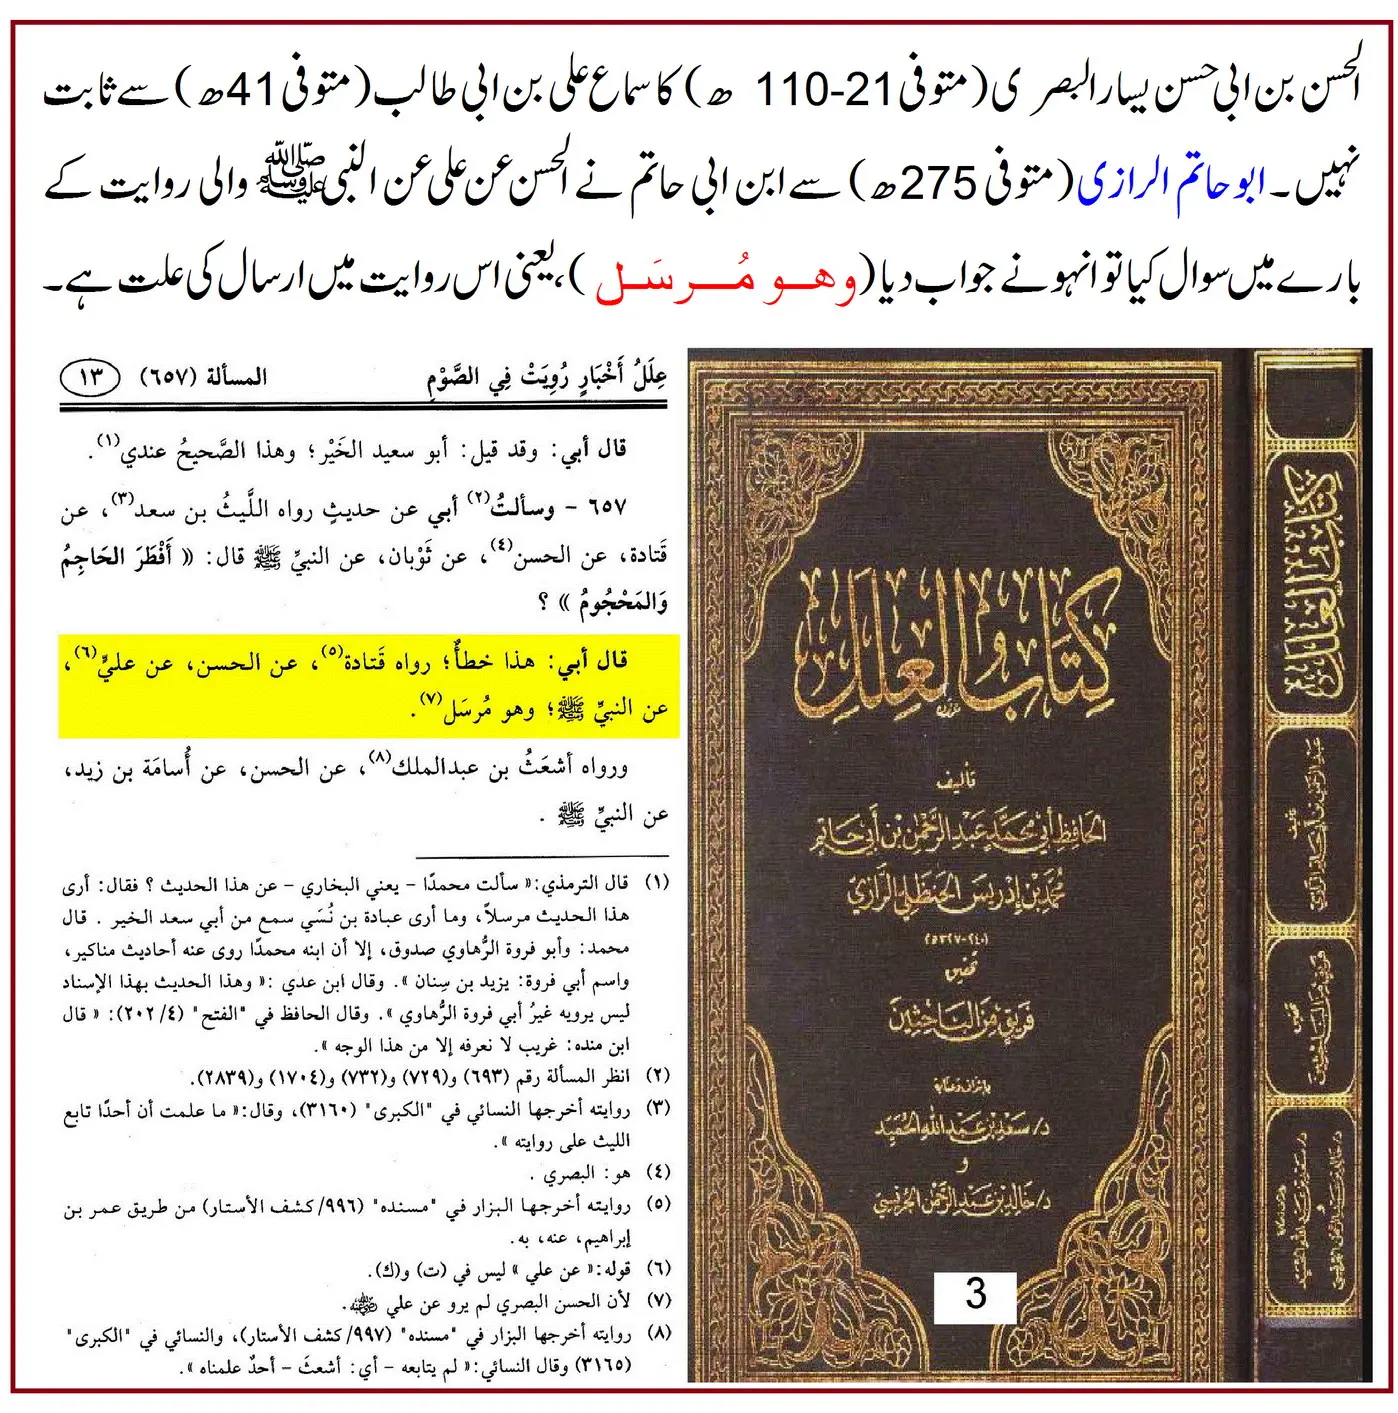 الحسن بن ابی حسن یسار البصری (متوفی 21-110 ھ) کا سماع علی بن ابی طالب (متوفی 41ھ) سے ثابت
نہیں۔ ابو حاتم الرازی (متوفی 275ھ) سے ابن ابی حاتم نے الحسن عن علی عن النبی ﷺ والی روایت کے
بارے میں سوال کیا تو انہونے جواب دیا (وهو مُرسَل)، یعنی اس روایت میں ارسال کی علت ہے۔
عِلَلُ أَخْبَارٍ رُوِيَتْ فِي الصَّوْمِ المسألة (٦٥٧) ١٣
قال أبي: وقد قيل: أبو سعيد الخَيْر؛ وهذا الصَّحيحُ عندي(١).
٦٥٧ - وسألتُ(٢) أبي عن حديثٍ رواه اللَّيثُ بن سعد(٣)، عن
قَتادة، عن الحسن(٤)، عن ثَوْبان، عن النبيِّ ﷺ قال: « أَفْطَرَ الحَاجِمُ
وَالمَحْجُومُ » ؟
قال أبي: هذا خطأٌ؛ رواه قَتادة(٥)، عن الحسن، عن عليٍّ(٦)،
عن النبيِّ ﷺ؛ وهو مُرسَل(٧).
ورواه أشعَثُ بن عبدالملك(٨)، عن الحسن، عن أُسامَة بن زيد،
عن النبيِّ ﷺ .
(١) قال الترمذي:« سألت محمدًا - يعني البخاري - عن هذا الحديث ؟ فقال: أرى
هذا الحديث مرسلاً، وما أرى عبادة بن نُسَي سمع من أبي سعد الخير . قال
محمد: وأبو فروة الرُّهاوي صدوق، إلا أن ابنه محمدًا روى عنه أحاديث مناكير،
واسم أبي فروة: يزيد بن سِنان ». وقال ابن عدي :« وهذا الحديث بهذا الإسناد
ليس يرويه غيرُ أبي فروة الرُّهاوي ». وقال الحافظ في "الفتح" (٢٠٢/٤): « قال
ابن منده: غريب لا نعرفه إلا من هذا الوجه ».
(٢) انظر المسألة رقم (٦٩٣) و(٧٢٩) و(٧٣٢) و(١٧٠٤) و(٢٨٣٩).
(٣) روايته أخرجها النسائي في "الكبرى" (٣١٦٠)، وقال:« ما علمت أن أحدًا تابع
الليث على روايته ».
(٤) هو: البصري .
(٥) روايته أخرجها البزار في "مسنده" (٩٩٦/كشف الأستار) من طريق عمر بن
إبراهيم، عنه، به.
(٦) قوله:« عن علي » ليس في (ت) و(ك).
(٧) لأن الحسن البصري لم يرو عن علي ﵁.
(٨) روايته أخرجها البزار في "مسنده" (٩٩٧/كشف الأستار)، والنسائي في "الكبرى"
(٣١٦٥) وقال النسائي:« لم يتابعه - أي: أشعثَ - أحدٌ علمناه ».
كتاب العلل
تأليف
الحافظ أبي محمد عبد الرحمن بن أبي حاتم
محمد بن إدريس الحنظلي الرازي
(٢٤٠-٣٢٧هـ)
تحقيق
فريق من الباحثين
بإشراف وعناية
د/ سعد بن عبد الله الحميد
و
د/ خالد بن عبد الرحمن الجريسي
3
كتاب العلل
تحقيق
فريق من الباحثين